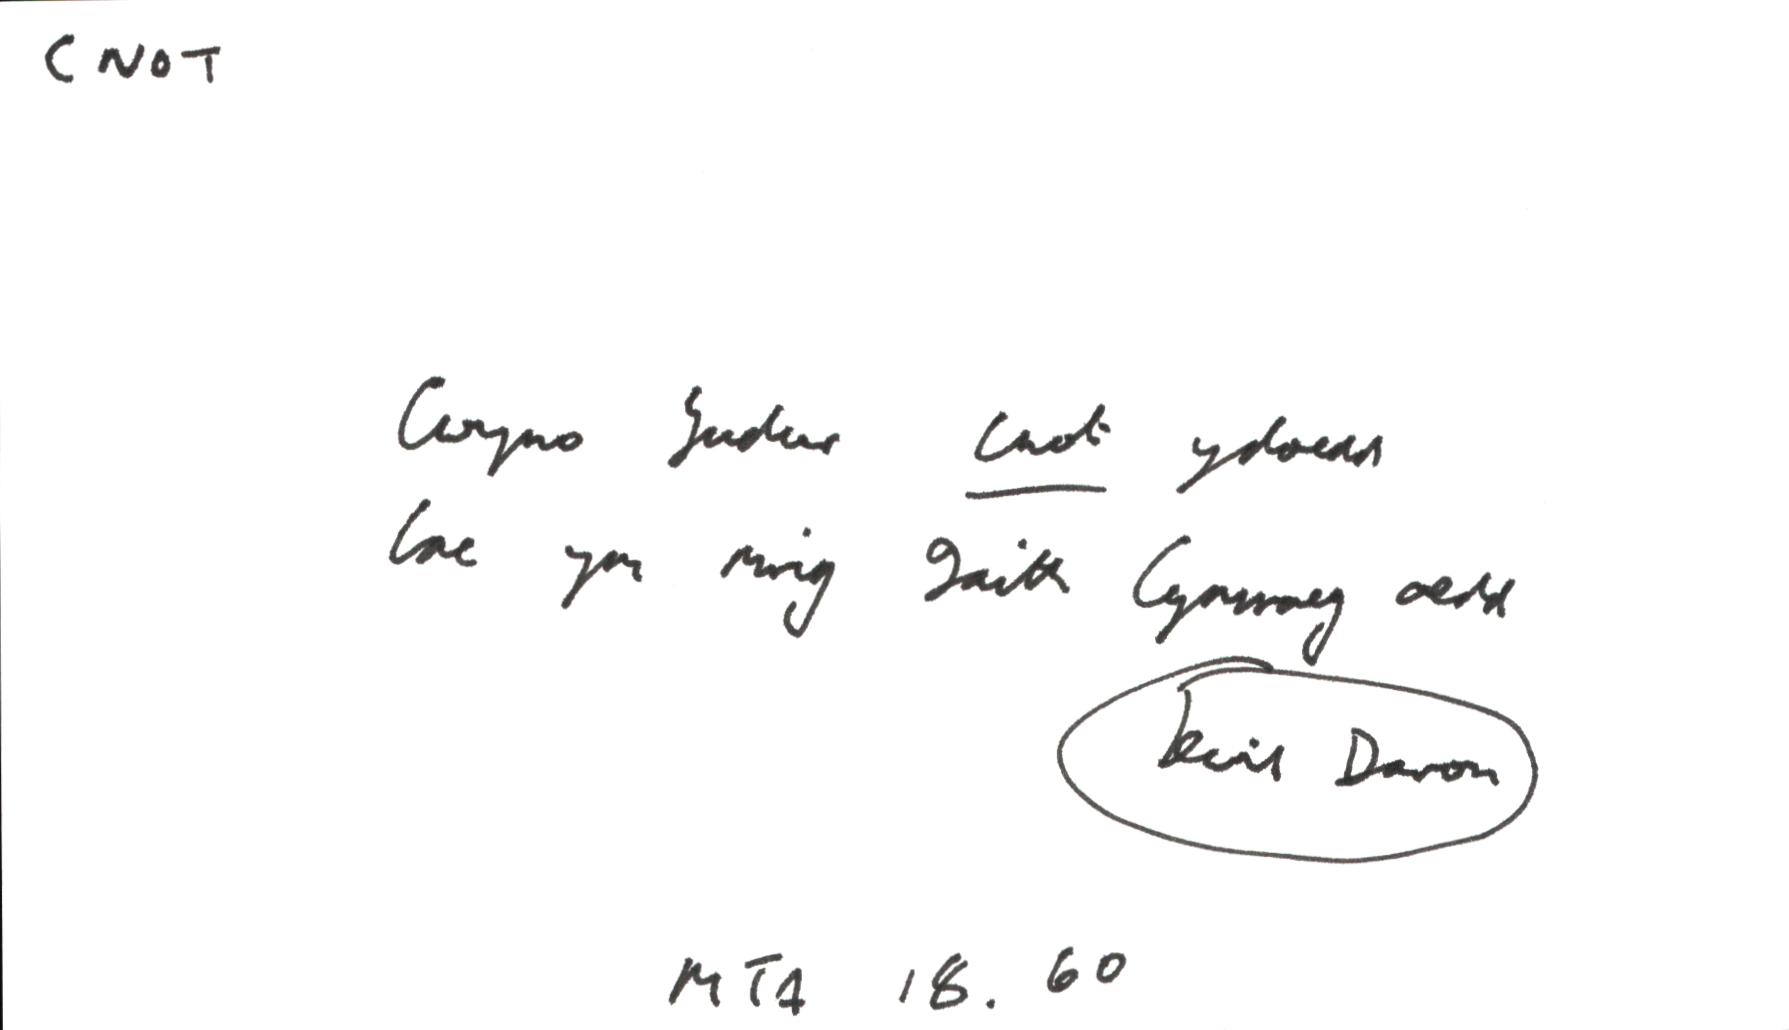 CNOT
Cwyno Gudur cnot ydoedd
Cae ym mrig iaith Cymraeg oedd
Lewis Daron
MTA 18.60